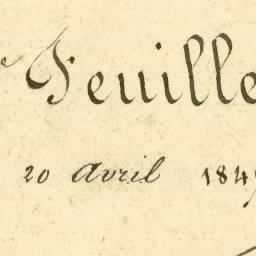 Feuille
20 Avril 184